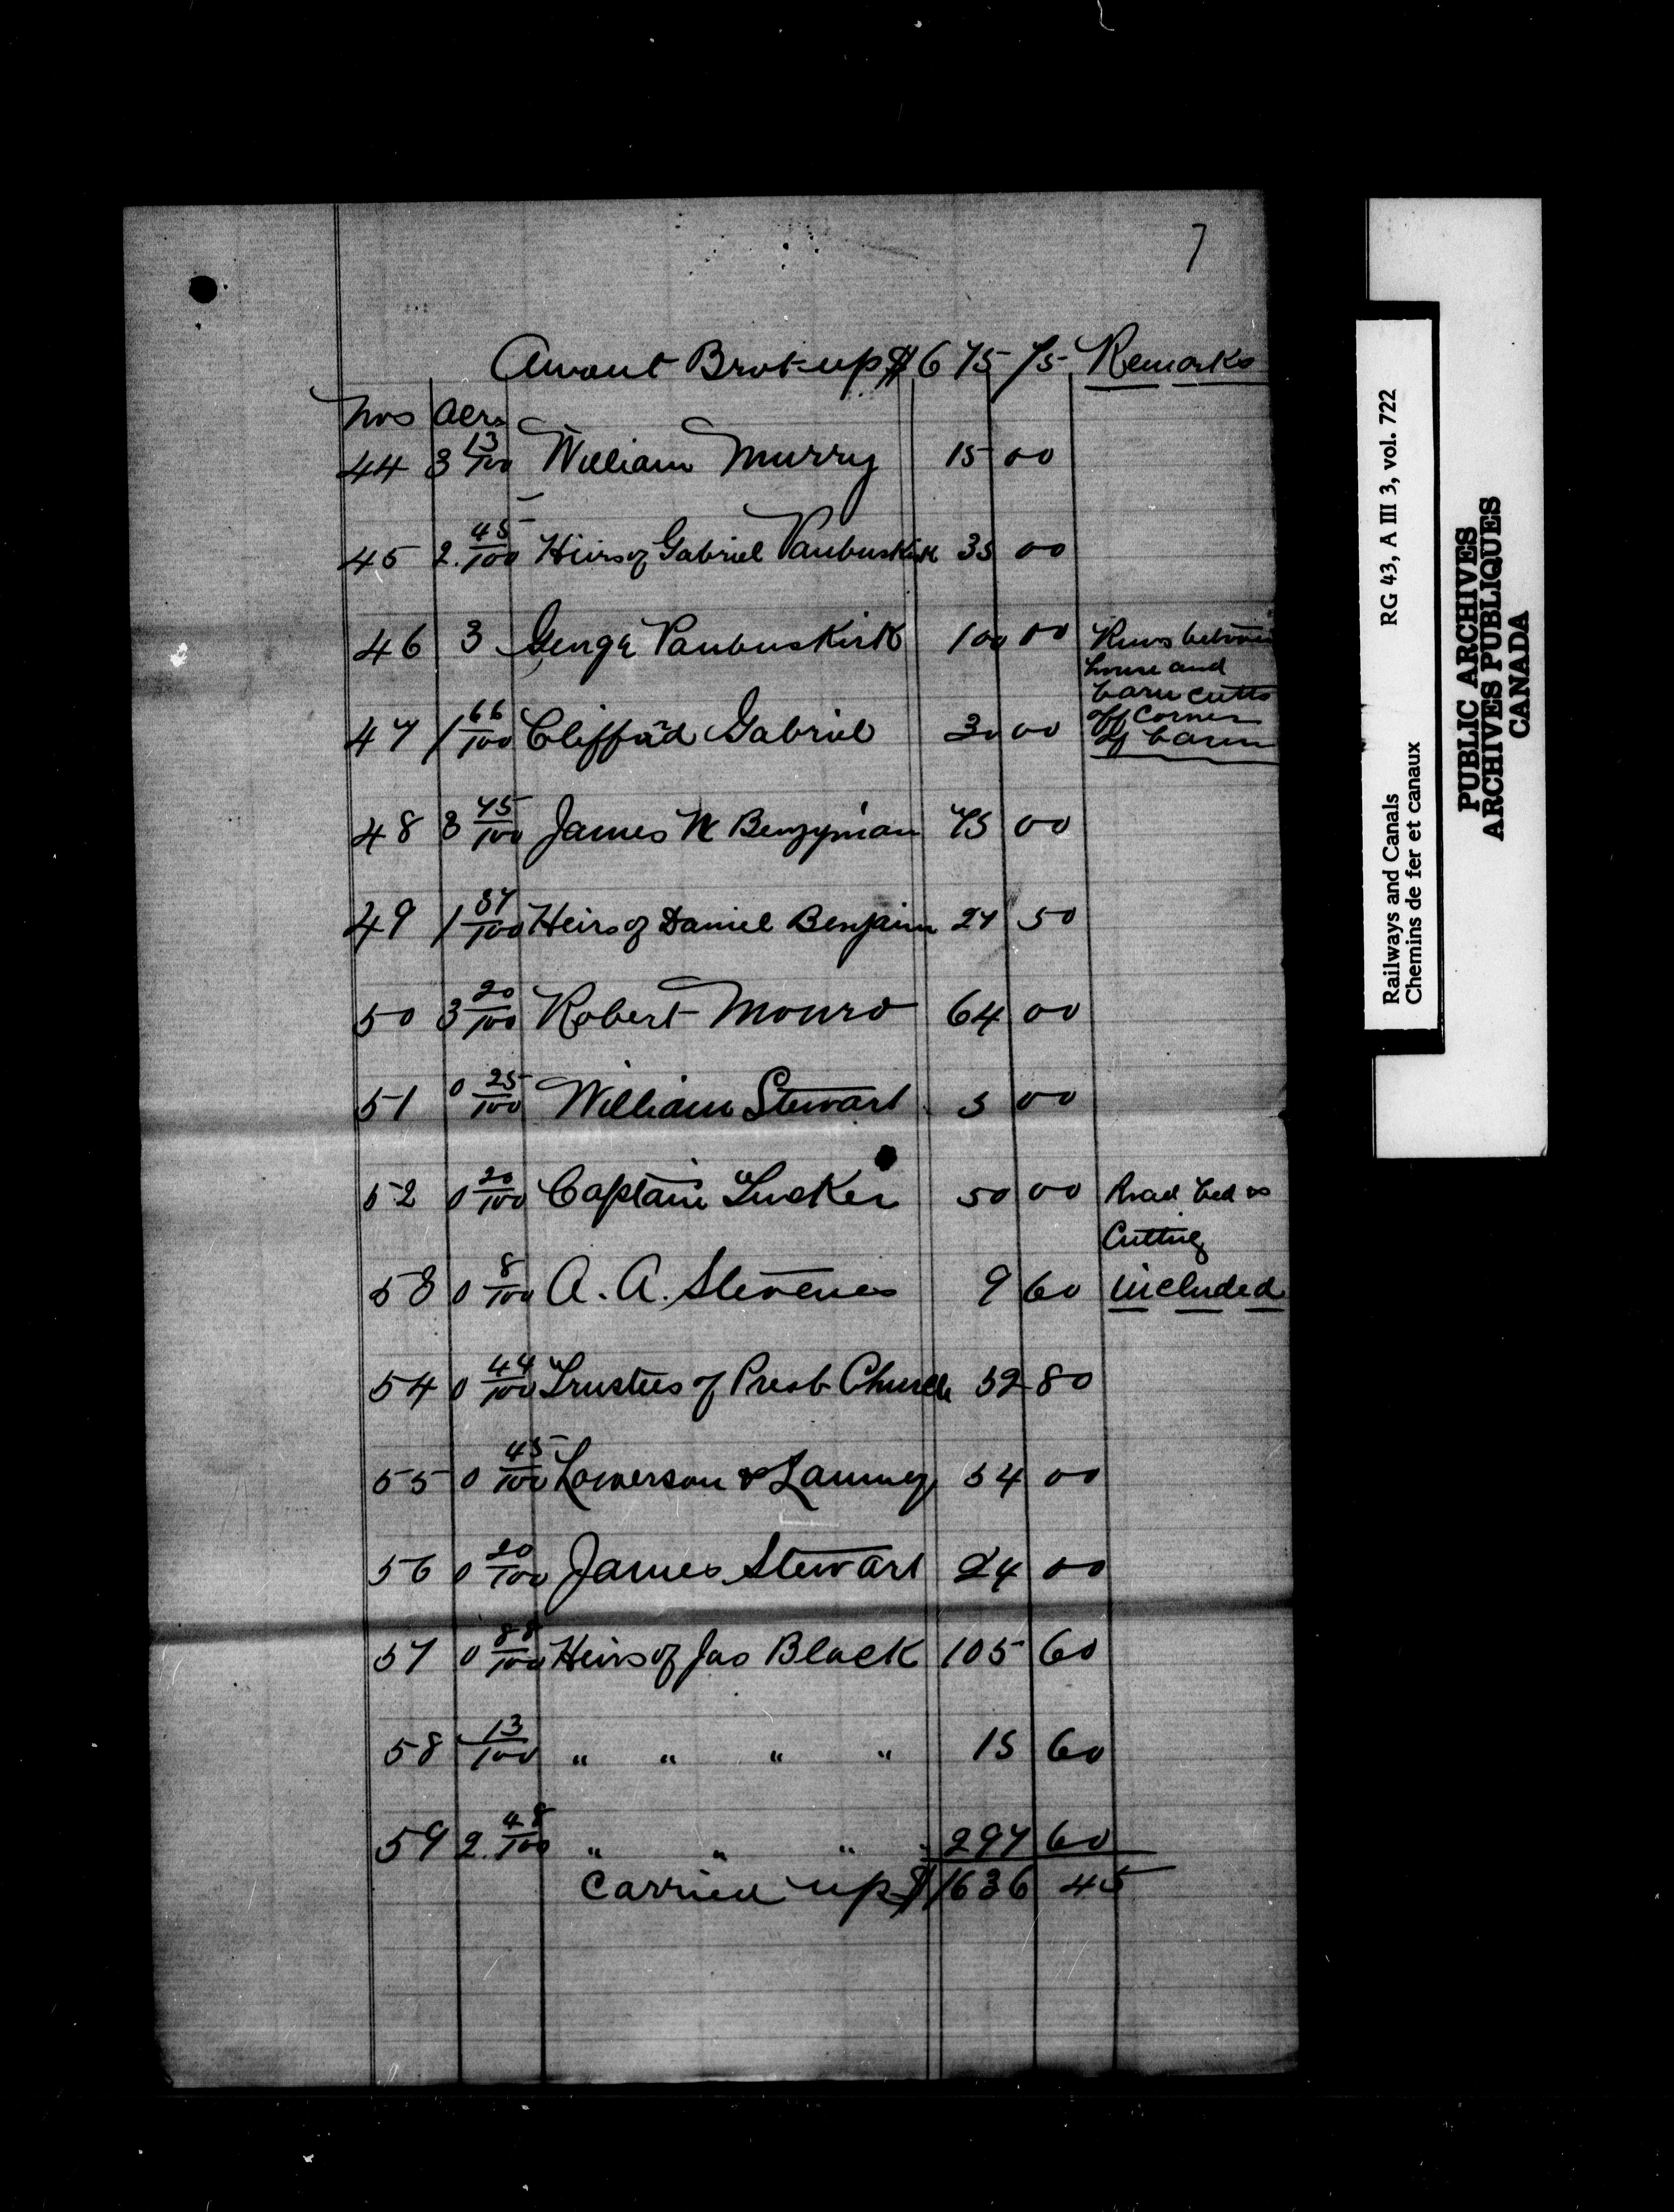 7
Amount Brot up $ 675 75 Remarks
Nos Acrs
44 3 13/100 William Murry 15 00
45 2. 45/100 Heirs of Gabriel Vanbuskirk 35 00
46 3 George Vanbuskirk 100 00 Runs between
house and
barn cutts
47 1 66/100 Clifford Gabriel 30 00 off corner
of barn
48 3 75/100 James W 75 00
49 1 37/100 Heirs of Daniel Benjamin 27 50
50 3 20/100 Robert Monro 64 00
51 0 25/100 William Stewart 5 00
52 0 20/100 Captain Tucker 50 00 Road bed &
Cutting
53 0 8/100 A. A. Stevenes 9 60 included
54 0 44/100 Trustees of Presb Church 52 80
55 0 45/100 Lowerson & 54 00
56 0 20/100 James Stewart 24 00
57 0 88/100 Heirs of Jas Black 105 60
58 13/100 " " " " 15 60
59 2. 48/100 " " " 297 60
Carried up $ 1636 45
Railways and Canals RG 43, A III 3, vol. 722
Chemins de fer et canaux
PUBLIC ARCHIVES
ARCHIVES PUBLIQUES
CANADA